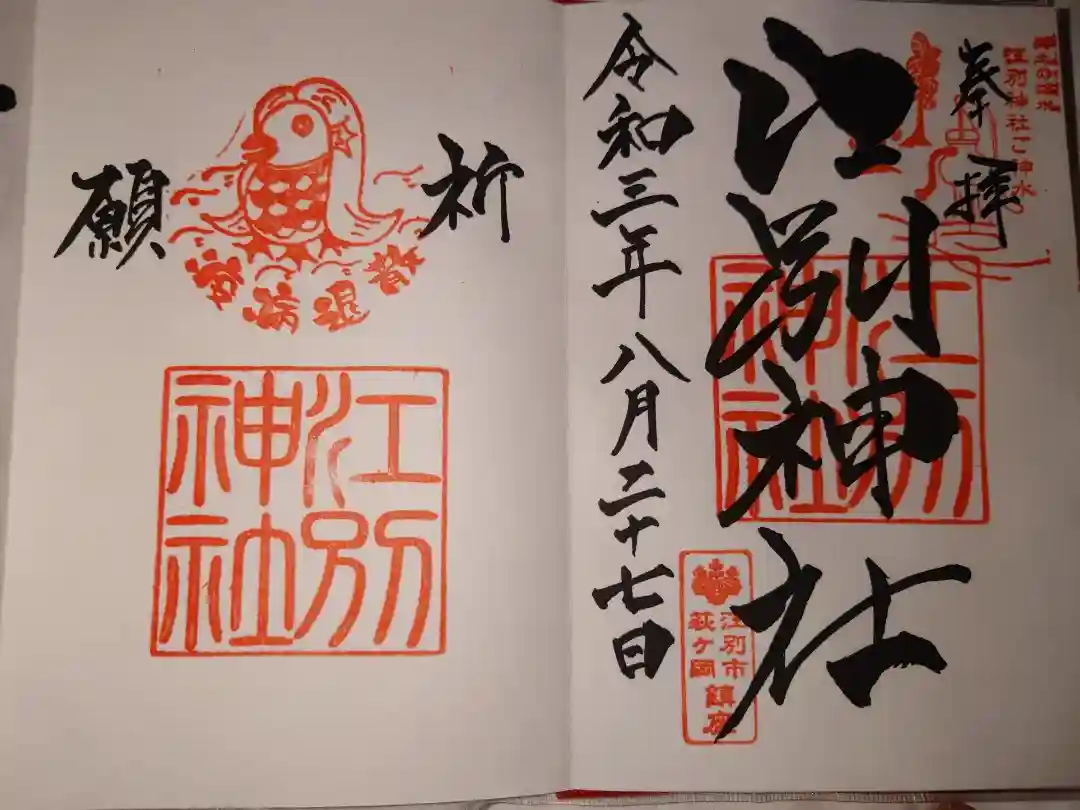 奉拝
江別神社ご神水
江別神社
江別神社
江別市
萩ヶ岡
鎮座
令和三年八月二十七日
祈願
疫病退散
江別神社